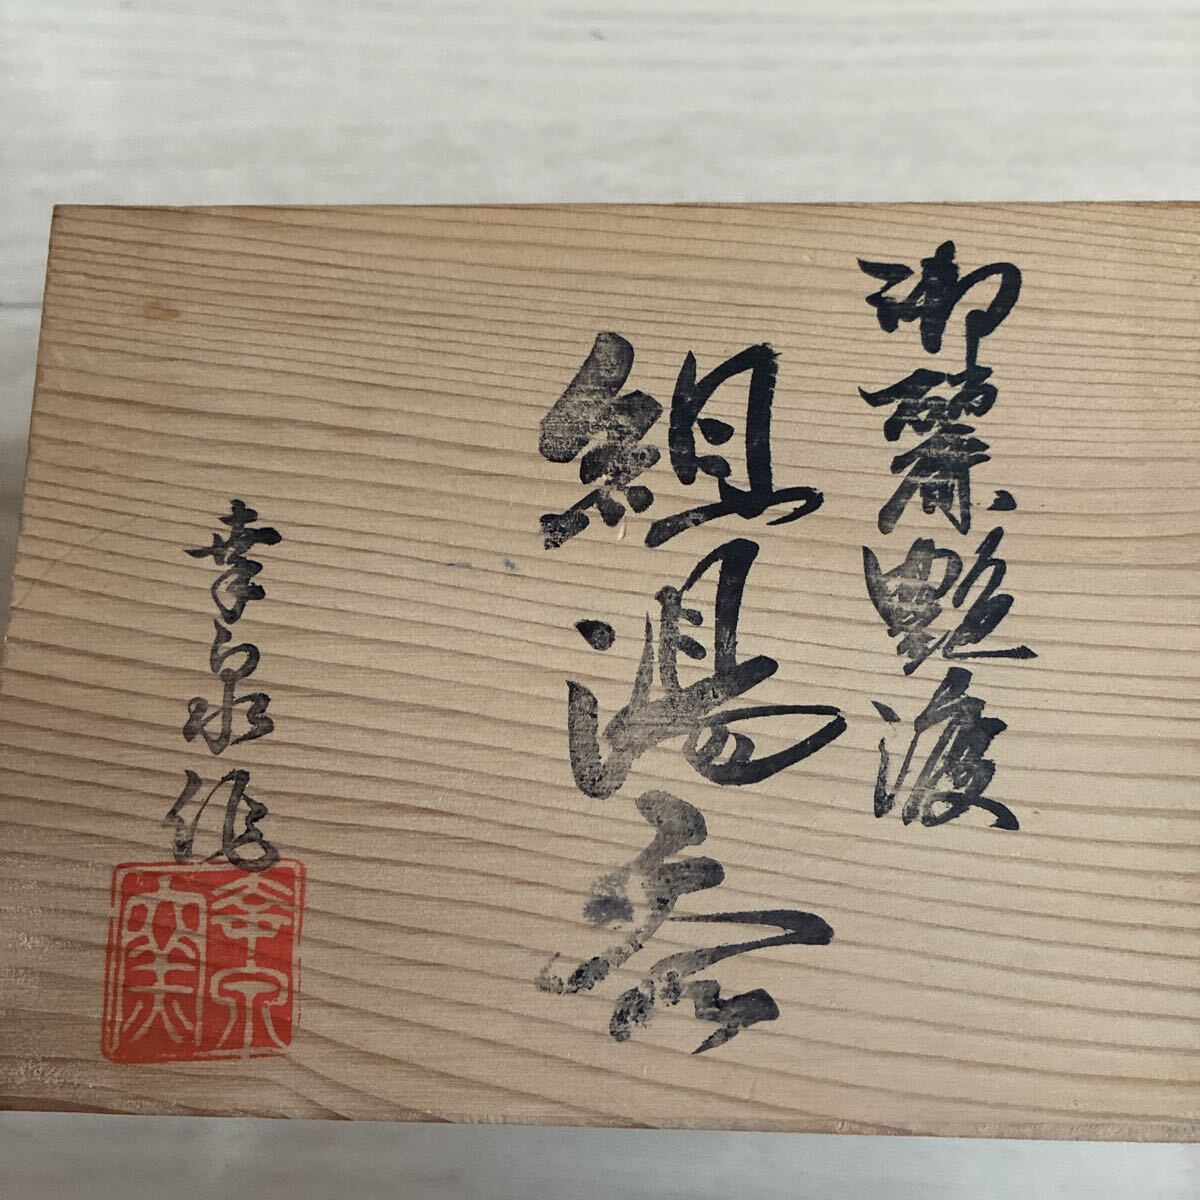 御翠艶渡
組湯呑
幸泉作
幸泉窯